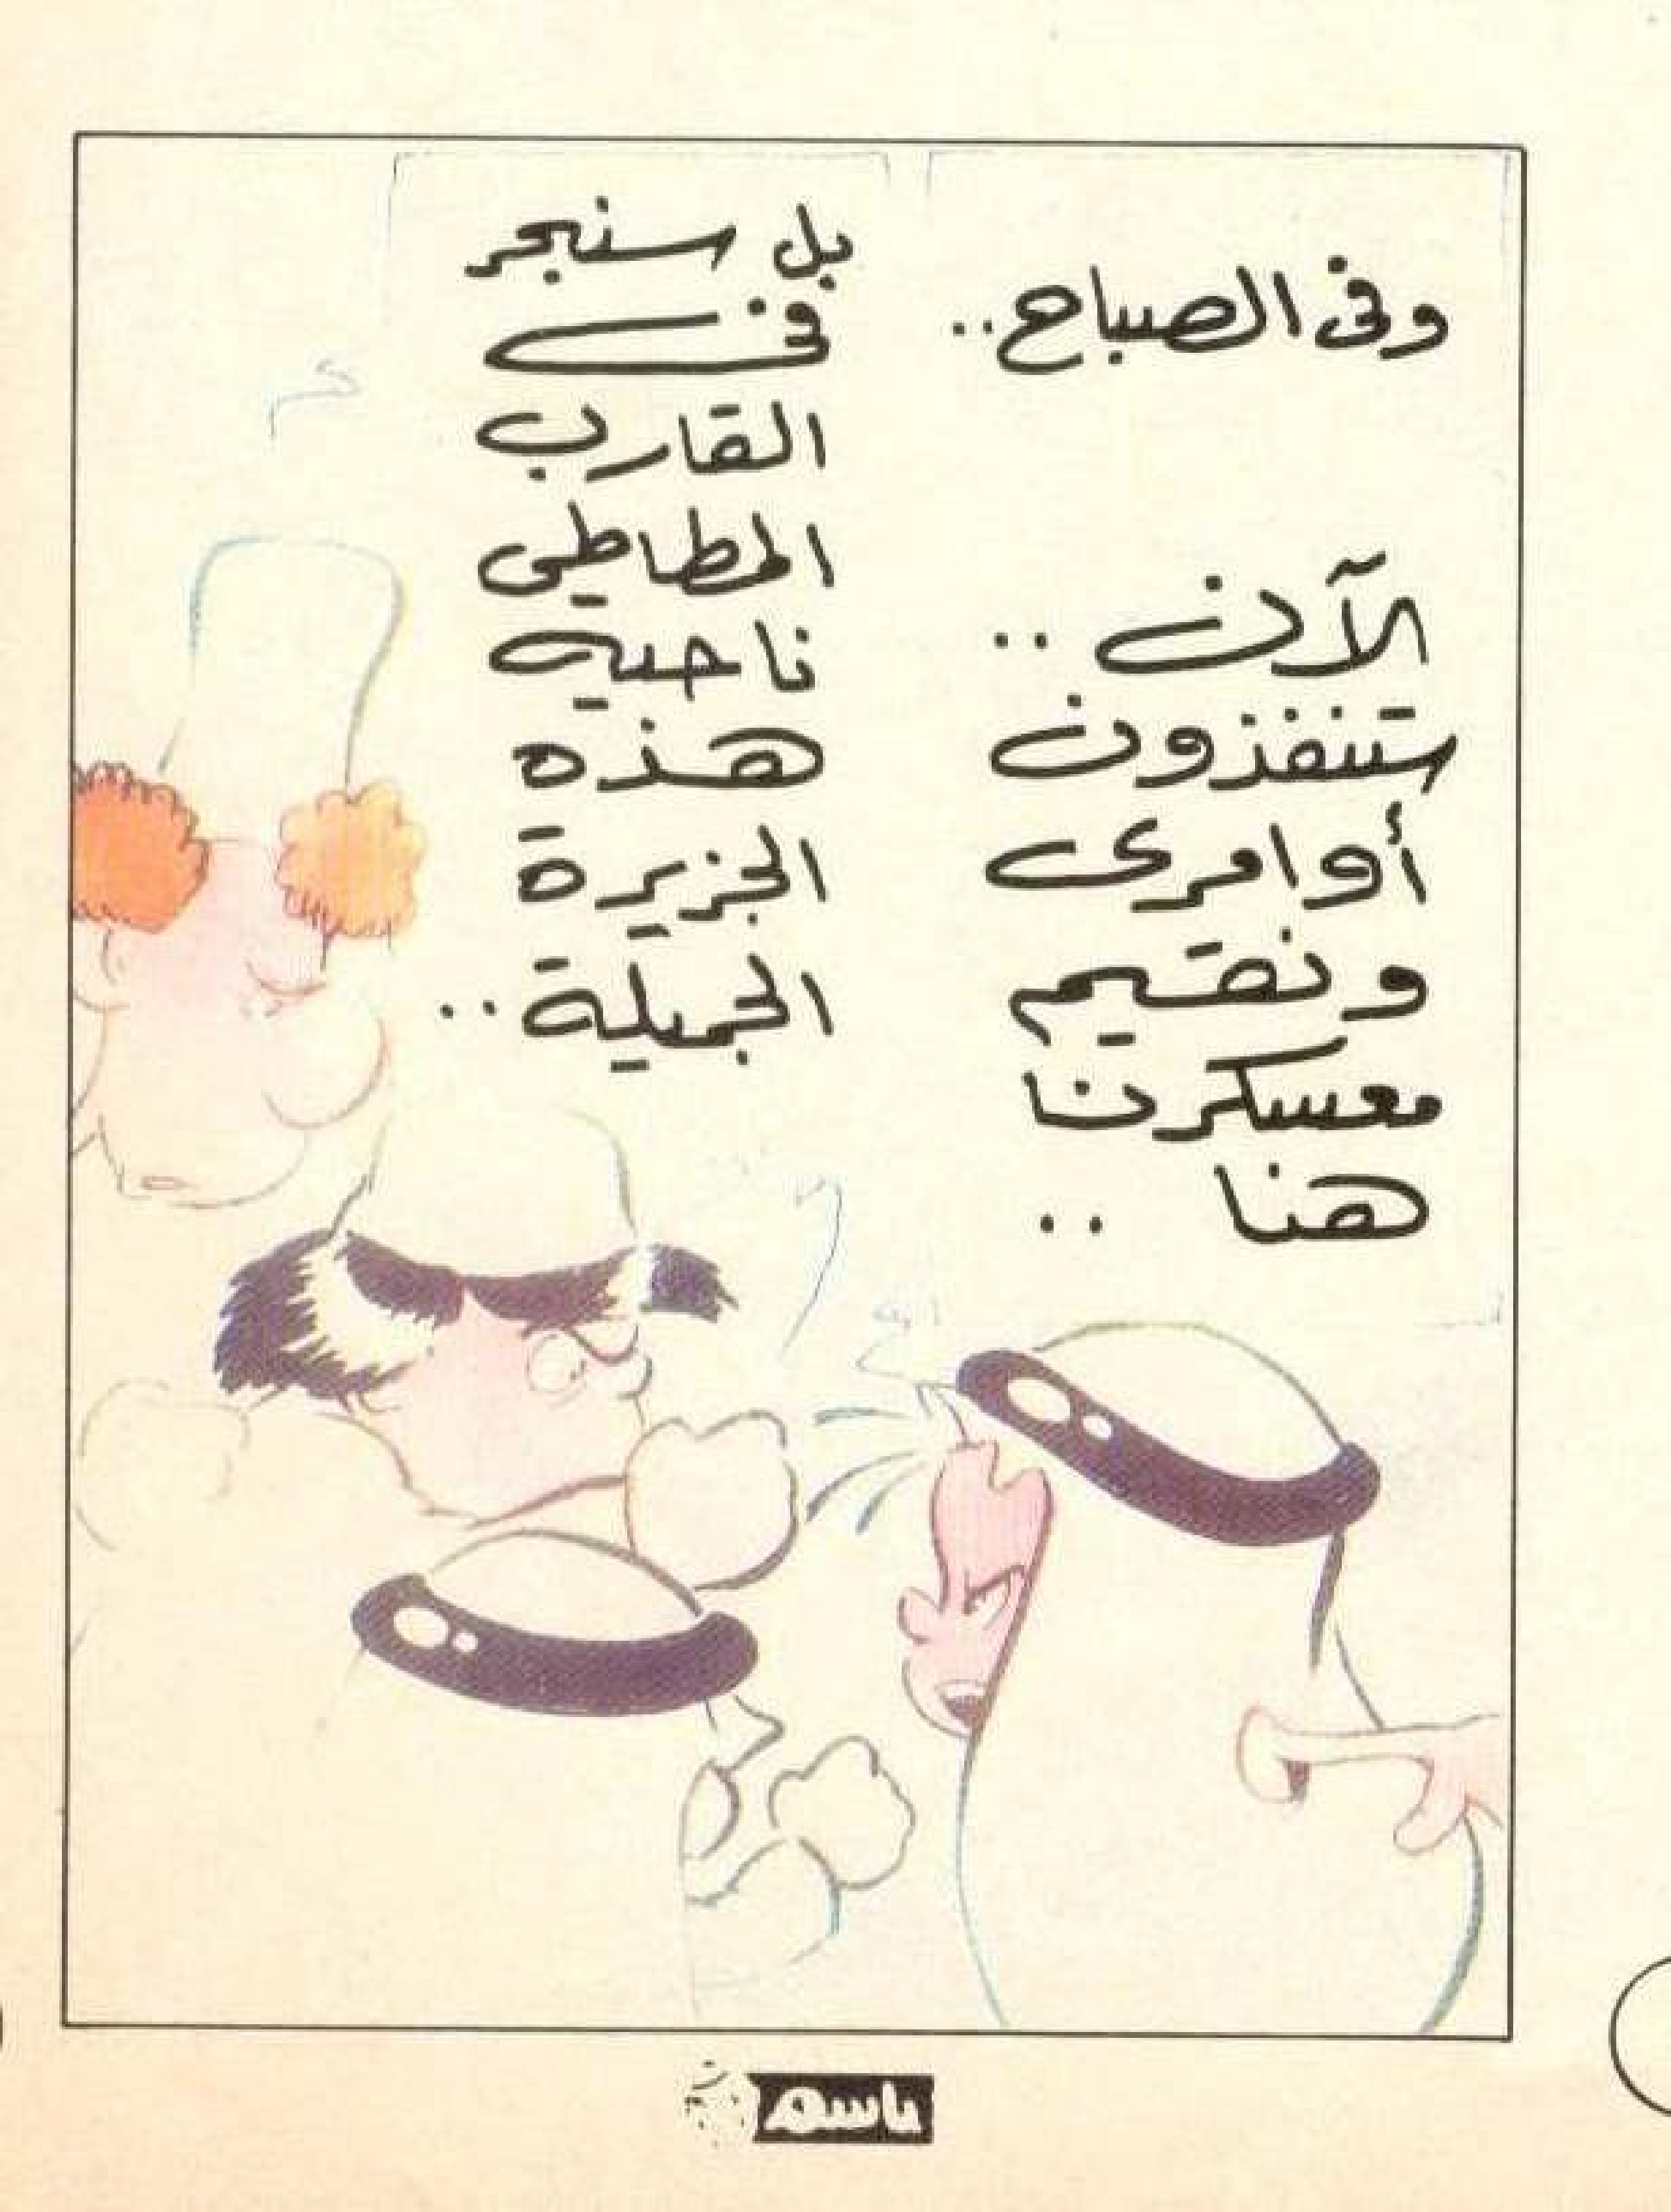 وفى الصباح..
الآن ..
ستنفذون
أوامرى
ونقيم
معسكرنا
هنا ..
بل سنبحر
فى
القارب
المطاطى
ناحية
هذه
الجزيرة
الجميلة..
باسم